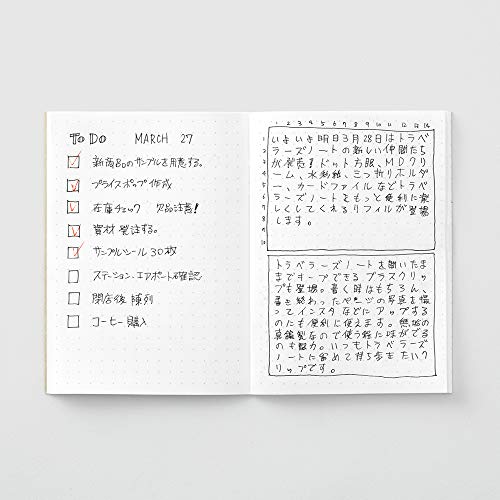 TO DO MARCH 27
新商品のサンプルを用意する。
プライスポップ作成
在庫チェック 欠品注意!
資材発注する。
サンプルシール30枚
ステーション、エアポート確認
閉店後 陳列
コーヒー購入
1 2 3 4 5 6 7 8 9 10 11 12 13 14
1 いよいよ明日3月28日はトラベ
2 ラーズノートの新しい仲間たち
3 が発売!ドット方眼、MDクリ
4 ーム、水彩紙、三つ折りホルダ
5 ー、カードファイルなどトラベ
6 ラーズノートをもっと便利に楽
7 しくしてくれるリフィルが登場
8 します。
9
10
トラベラーズノートを開いたま
までキープできるブラスクリッ
プも登場。書く時はもちろん、
書き終わったページの写真を撮
ってインスタなどにアップする
のにも便利に使えます。無垢の
真鍮製なので使う程に味がでる
のも魅力。いつもトラベラーズ
ノートに留めて持ち歩きたいク
リップです。